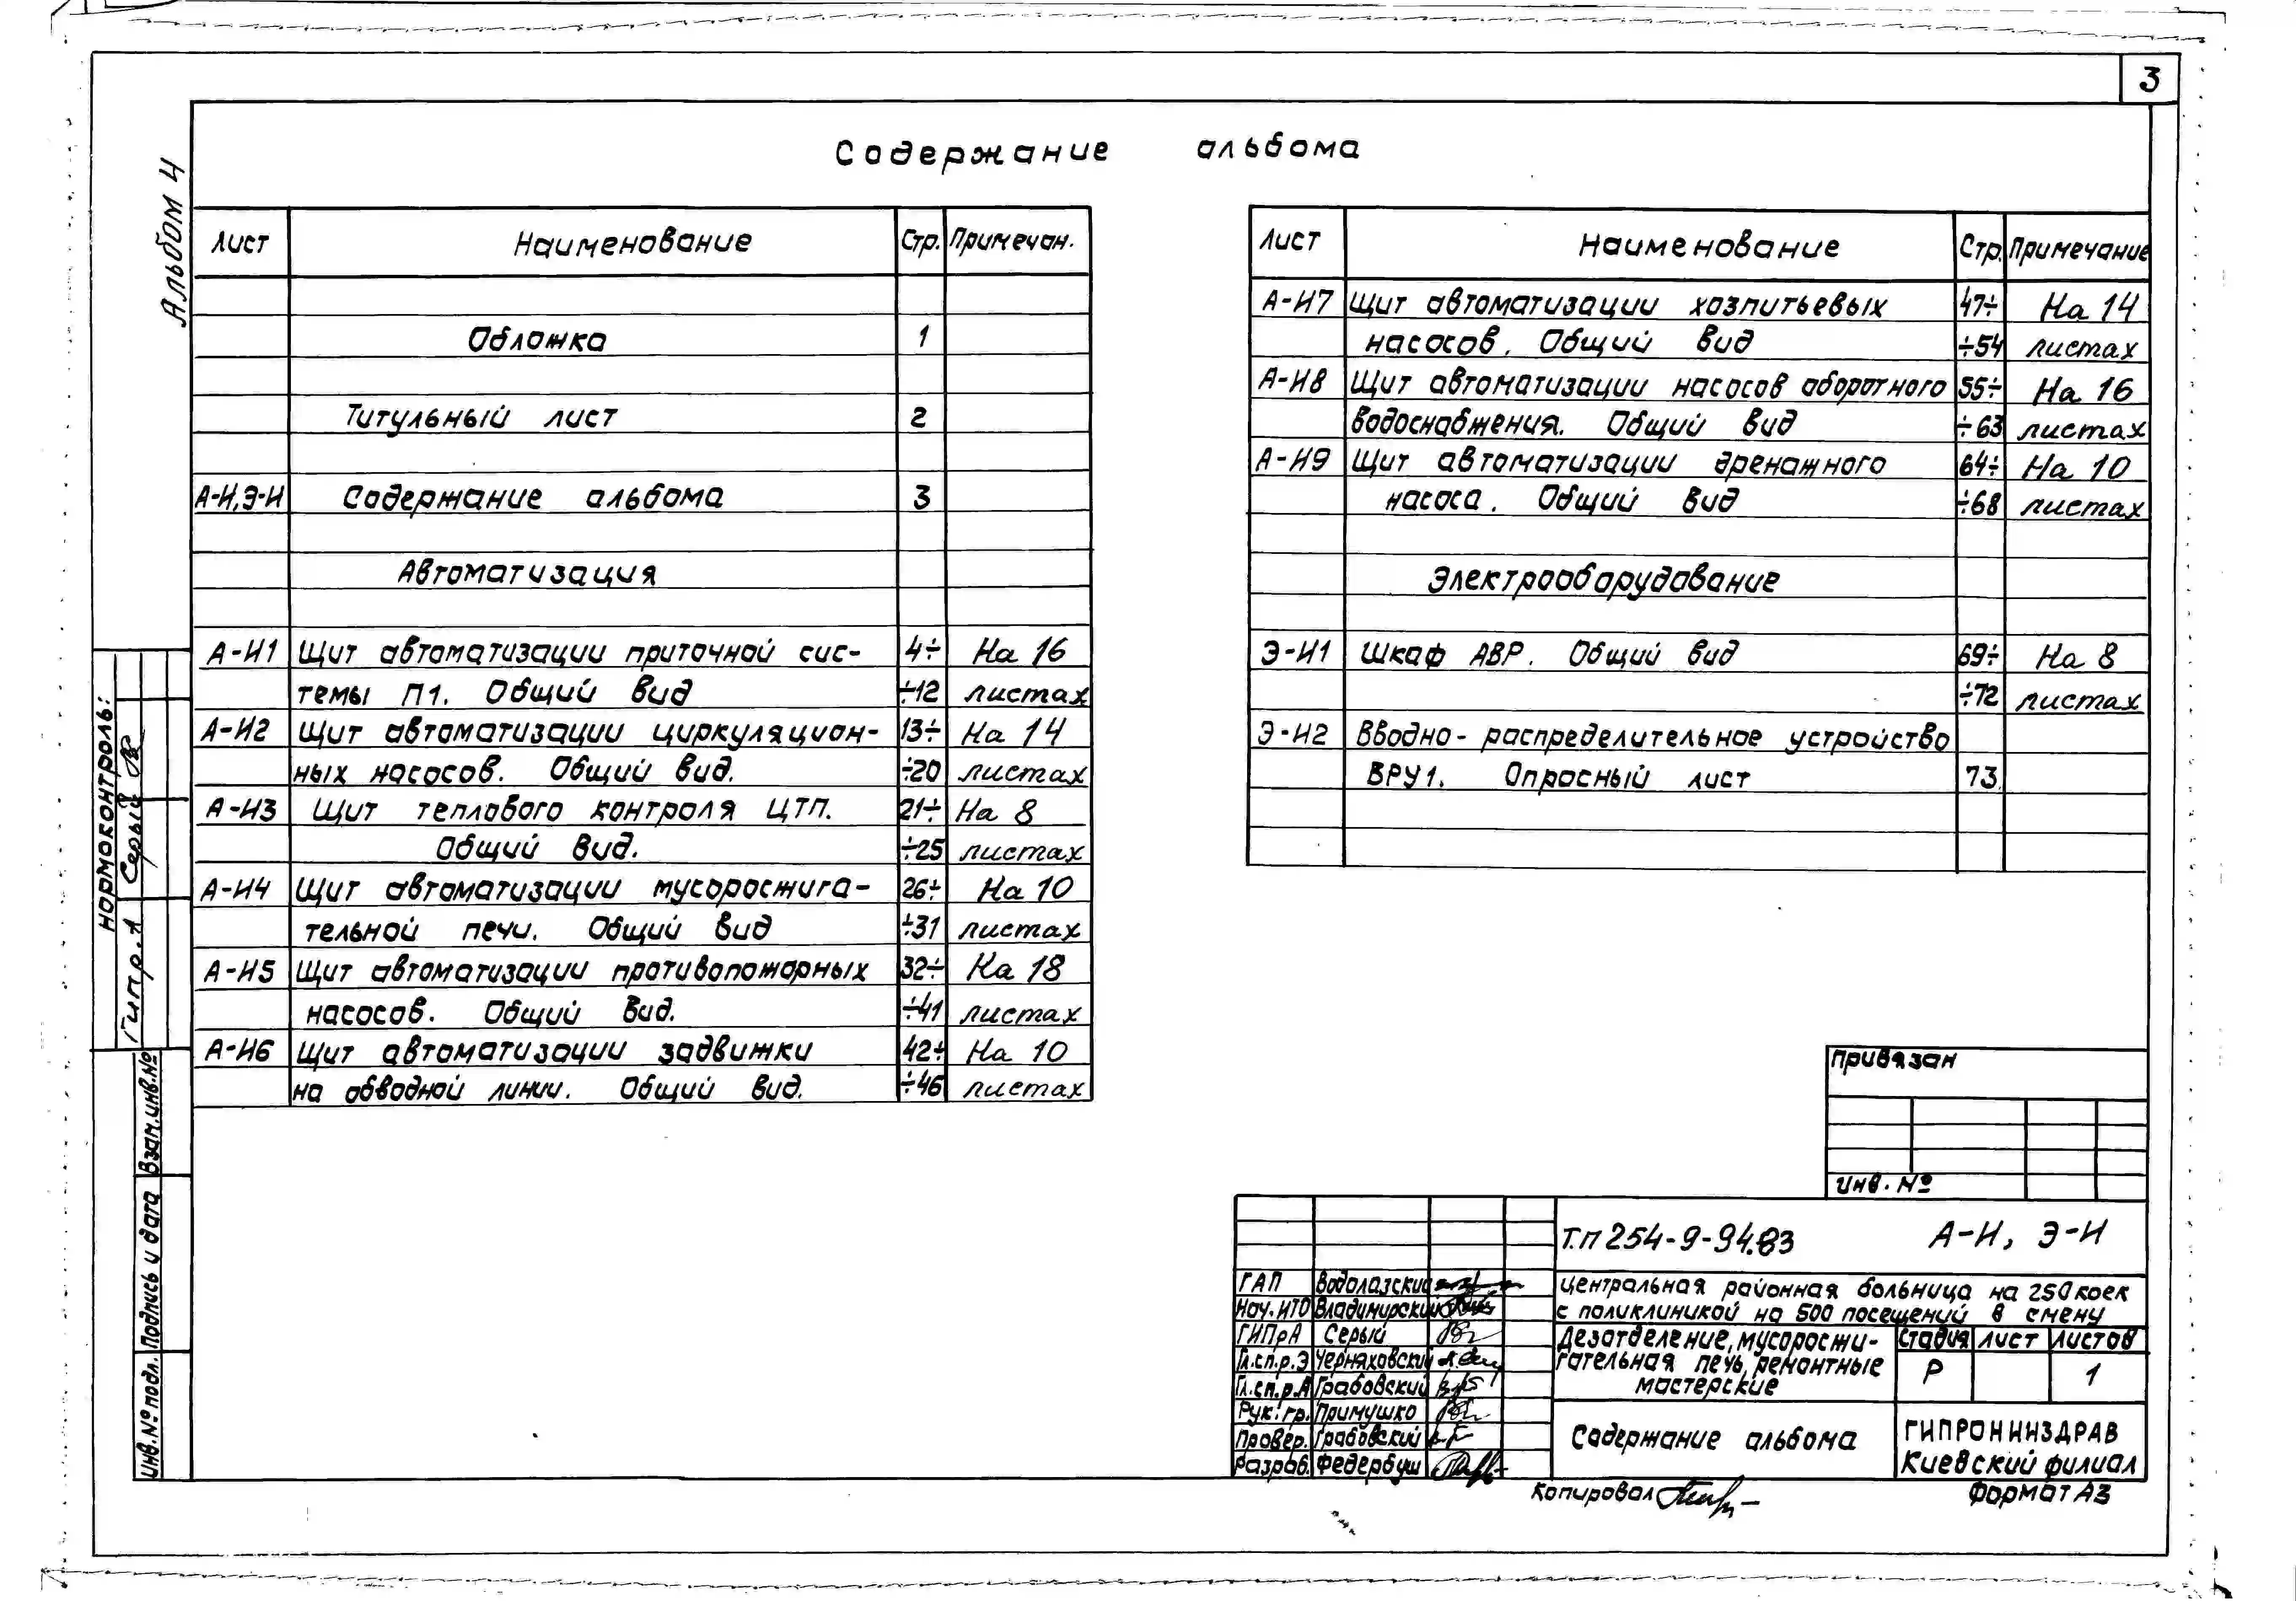 3
Содержание альбома
Альбом 4
Лист Наименование Стр. Примечан.
Обложка 1
Титульный лист 2
А-И, Э-И Содержание альбома 3
Автоматизация
А-И1 Щит автоматизации приточной сис- 4÷ На 16
темы П1. Общий вид ÷12 листах
А-И2 Щит автоматизации циркуляцион- 13÷ На 14
ных насосов. Общий вид. ÷20 листах
А-И3 Щит теплового контроля ЦТП. 21÷ На 8
Общий вид. ÷25 листах
А-И4 Щит автоматизации мусоросжига- 26÷ На 10
тельной печи. Общий вид ÷31 листах
А-И5 Щит автоматизации противопожарных 32÷ На 18
насосов. Общий вид. ÷41 листах
А-И6 Щит автоматизации задвижки 42÷ На 10
на обводной линии. Общий вид. ÷46 листах
Лист Наименование Стр. Примечание
А-И7 Щит автоматизации хозпитьевых 47÷ На 14
насосов. Общий вид ÷54 листах
А-И8 Щит автоматизации насосов оборотного 55÷ На 16
водоснабжения. Общий вид ÷63 листах
А-И9 Щит автоматизации дренажного 64÷ На 10
насоса. Общий вид ÷68 листах
Электрооборудование
Э-И1 Шкаф АВР. Общий вид 69÷ На 8
÷72 листах
Э-И2 Вводно-распределительное устройство
ВРУ1. Опросный лист 73
Нормоконтроль:
Гипр.А Серый
Взам.инв.№
Подпись и дата
Инв.№ подл.
Привязан
Инв. №
Т.П 254-9-94.83 А-И, Э-И
Центральная районная больница на 250 коек
с поликлиникой на 500 посещений в смену
ГАП Водолазский
Нач. ИТО Владимирский
ГИПрА Серый
Гл.сп.р.Э Черняховский
Гл.сп.р.А Грабовский
Рук. гр. Примушко
Провер. Грабовский
Разраб. Федербуш
Дезотделение, мусоросжи-
гательная печь, ремонтные
мастерские
Стадия Лист Листов
Р 1
Содержание альбома
ГИПРОНИИЗДРАВ
Киевский филиал
Копировал
Формат А3